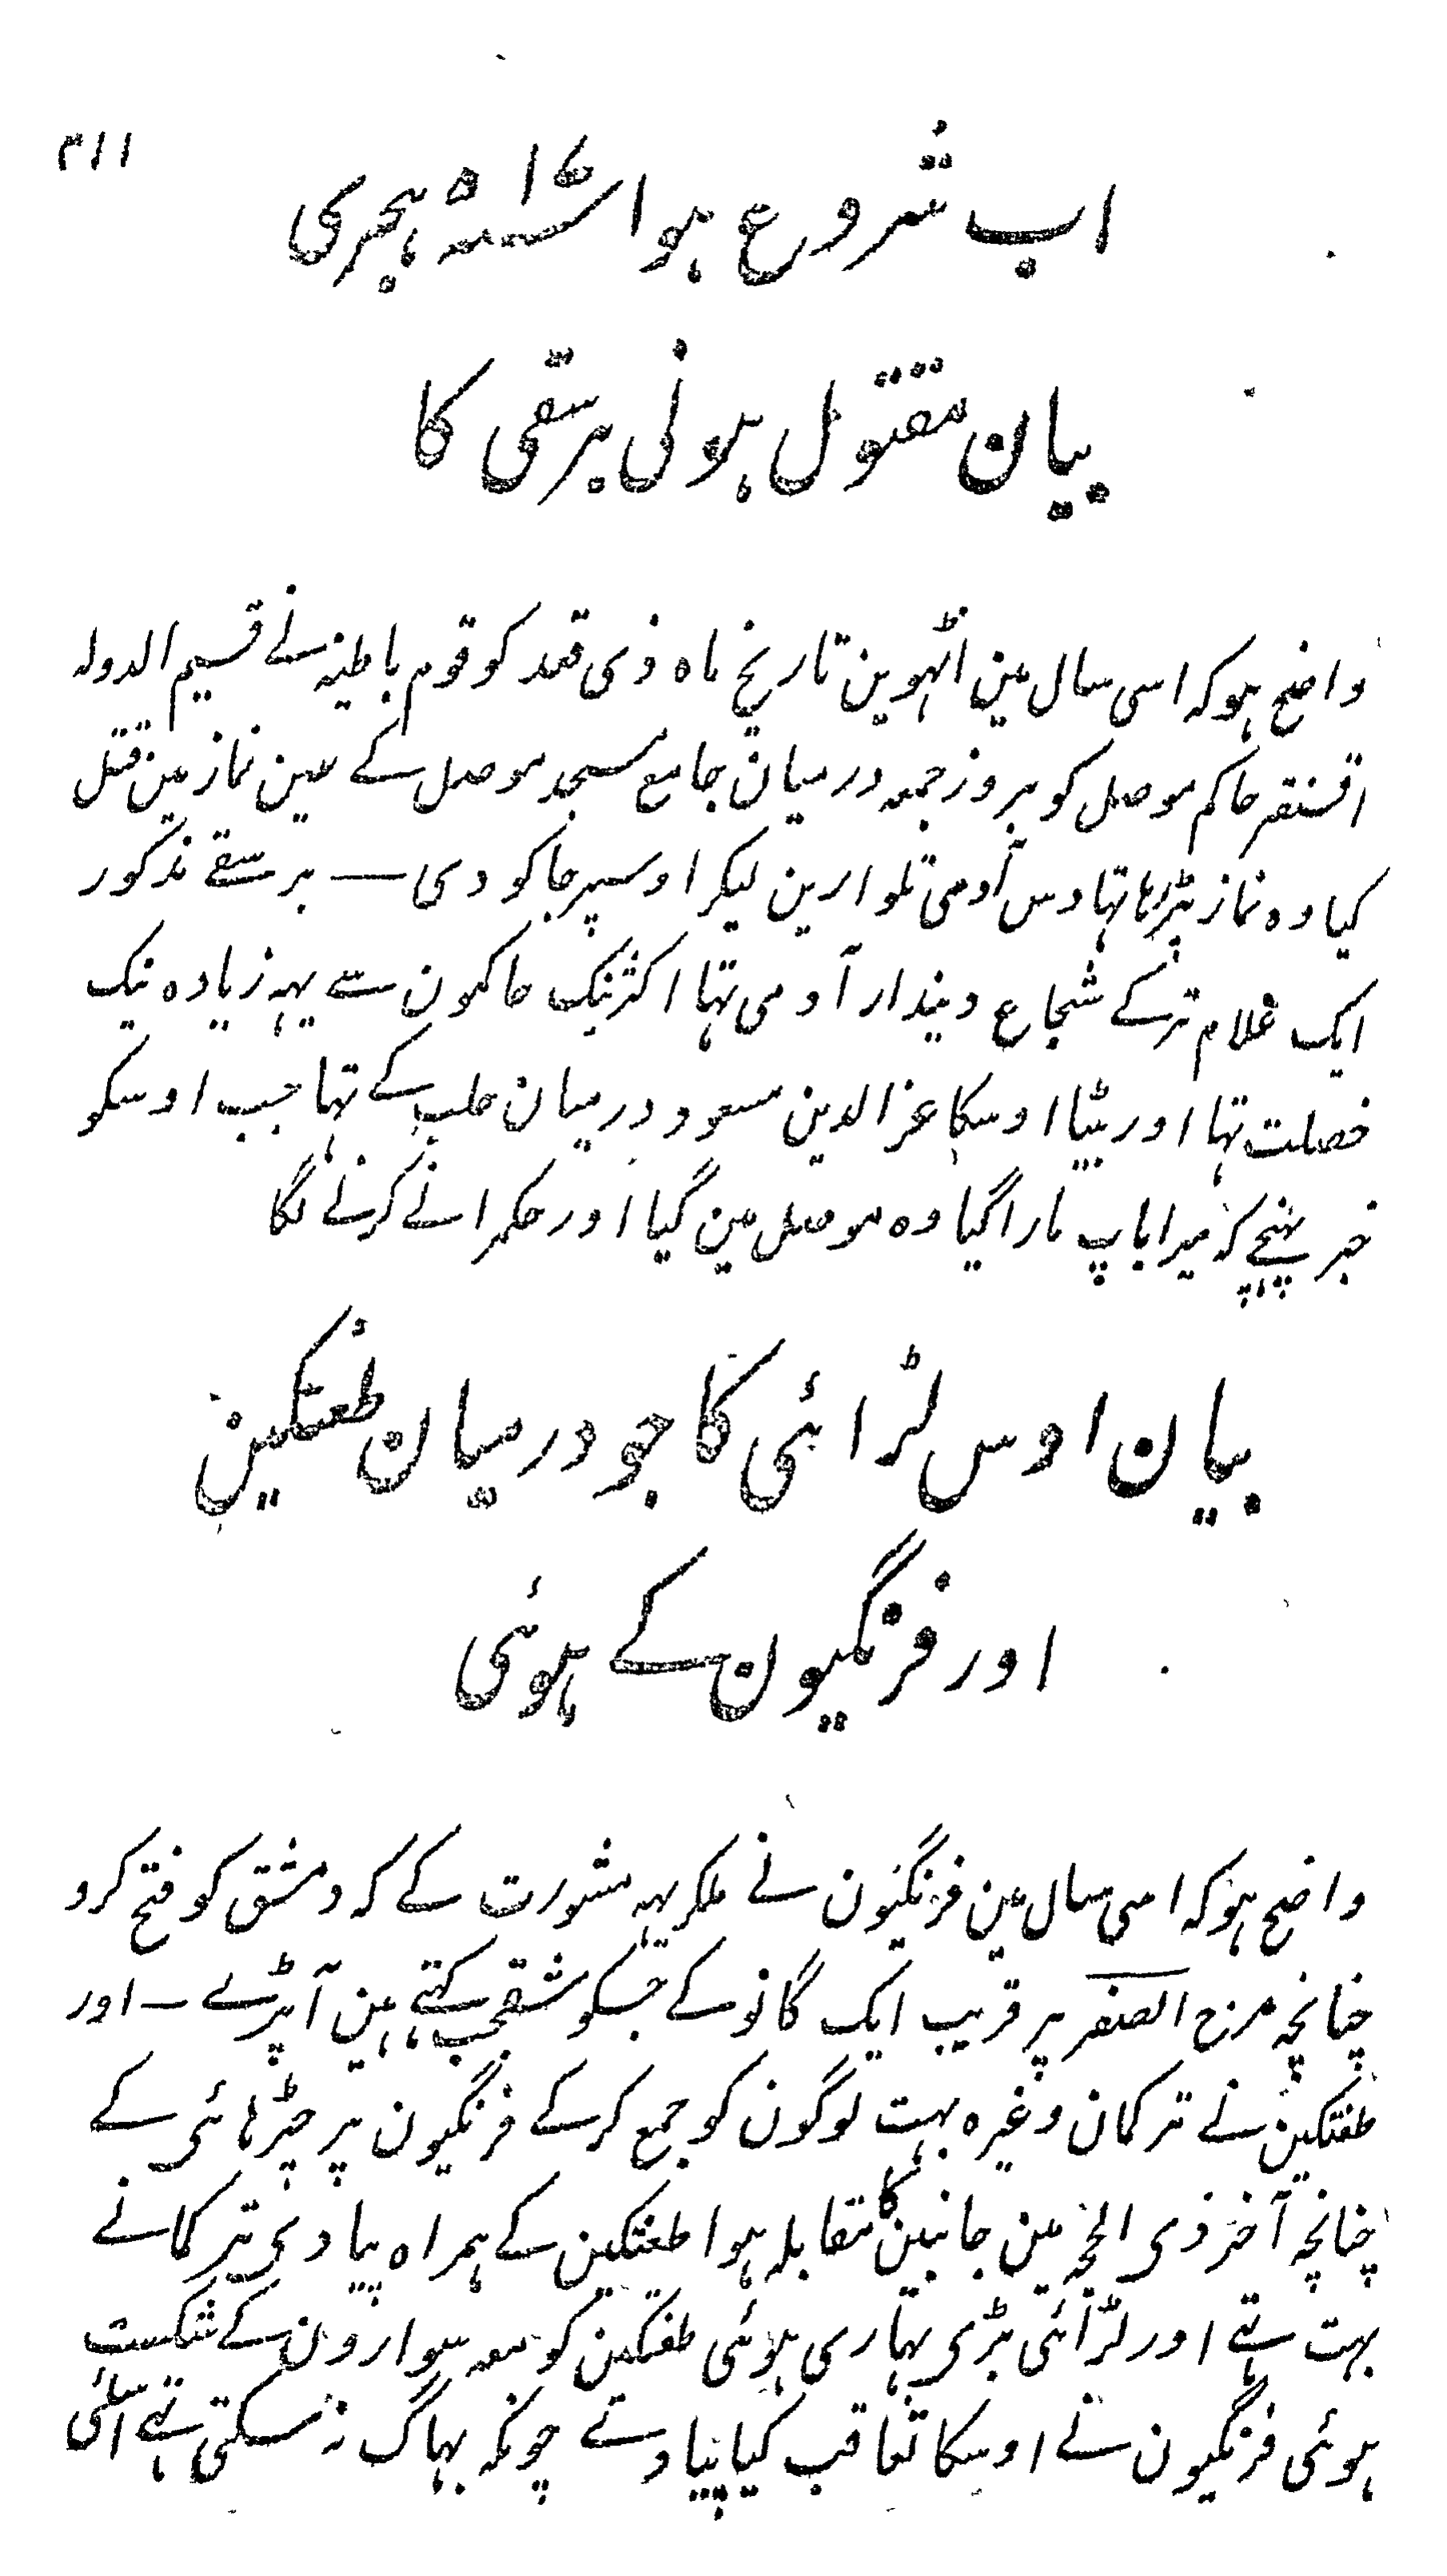 ۳۱۱
اب شروع ہوا ہجری
بیان مقتول ہونی برسقی کا
واضح ہو کہ اسی سال مین اٹہوین تاریخ ماہ ذی قعد کو قوم باطنیہ نے قسیم الدولہ
اقسنقر حاکم موصل کو بروز جمعہ درمیان جامع مسجد موصل کے عین نماز مین قتل
کیا وہ نماز پڑہا تہا دس آدمی تلوارین لیکر اوسپر جا کودی — برسقے مذکور
ایک غلام ترکے شجاع دیندار آدمی تہا اکثر نیک حاکمون سے یہہ زیادہ نیک
خصلت تہا اور بیٹا اوسکا عز الدین مسعود درمیان حلب کے تہا جب اوسکو
خبر پہنچے کہ میرا باپ مارا گیا وہ موصل مین گیا اور حکمرانے کرنے لگا
بیان اوس لڑائی کا جو درمیان طغتکین
اور فرنگیون کے ہوئی
واضح ہو کہ اسی سال مین فرنگیون نے ملکر یہہ مشورت کے کہ دمشق کو فتح کرو
چنانچہ مرج الصفر پر قریب ایک گانو کے جسکو شقحب کہتے ہین آپڑے — اور
طغتکین نے ترکمان وغیرہ بہت لوگون کو جمع کرکے فرنگیون پر چڑہائی کے
چنانچہ آخر ذی الحجہ مین جانبین کا مقابلہ ہوا طغتکین کے ہمراہ پیادی ترکمانے
بہت تہے اور لڑائی بڑی بہاری ہوئی طغتکین کو معہ سوارون کے شکست
ہوئی فرنگیون نے اوسکا تعاقب کیا پیادے چونکہ بہاگ نہ سکتی تہے اسلئی